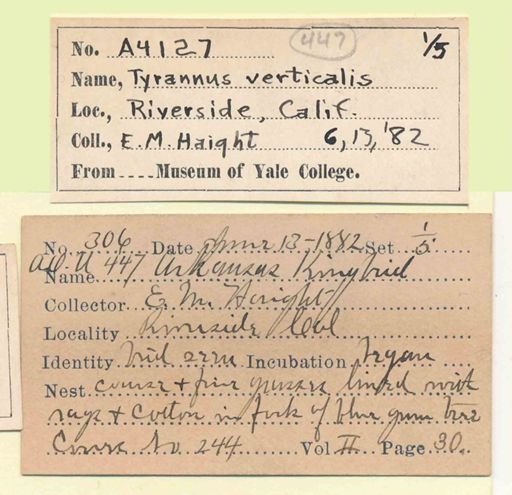 No. A4127 447 1/5
Name, Tyrannus verticalis
Loc., Riverside, Calif.
Coll., E.M. Haight 6, 13, '82
From .... Museum of Yale College.
No. 306 Date June 13-1882 Set 1/5
A.O.U 447 Arkansas Kingbird
Name
Collector E. M. Haight
Locality Riverside Cal
Identity bird seen Incubation began
Nest coarse & fine grasses lined with
rags & cotton in fork of blue gum tree
No. 244 Vol II Page 30.